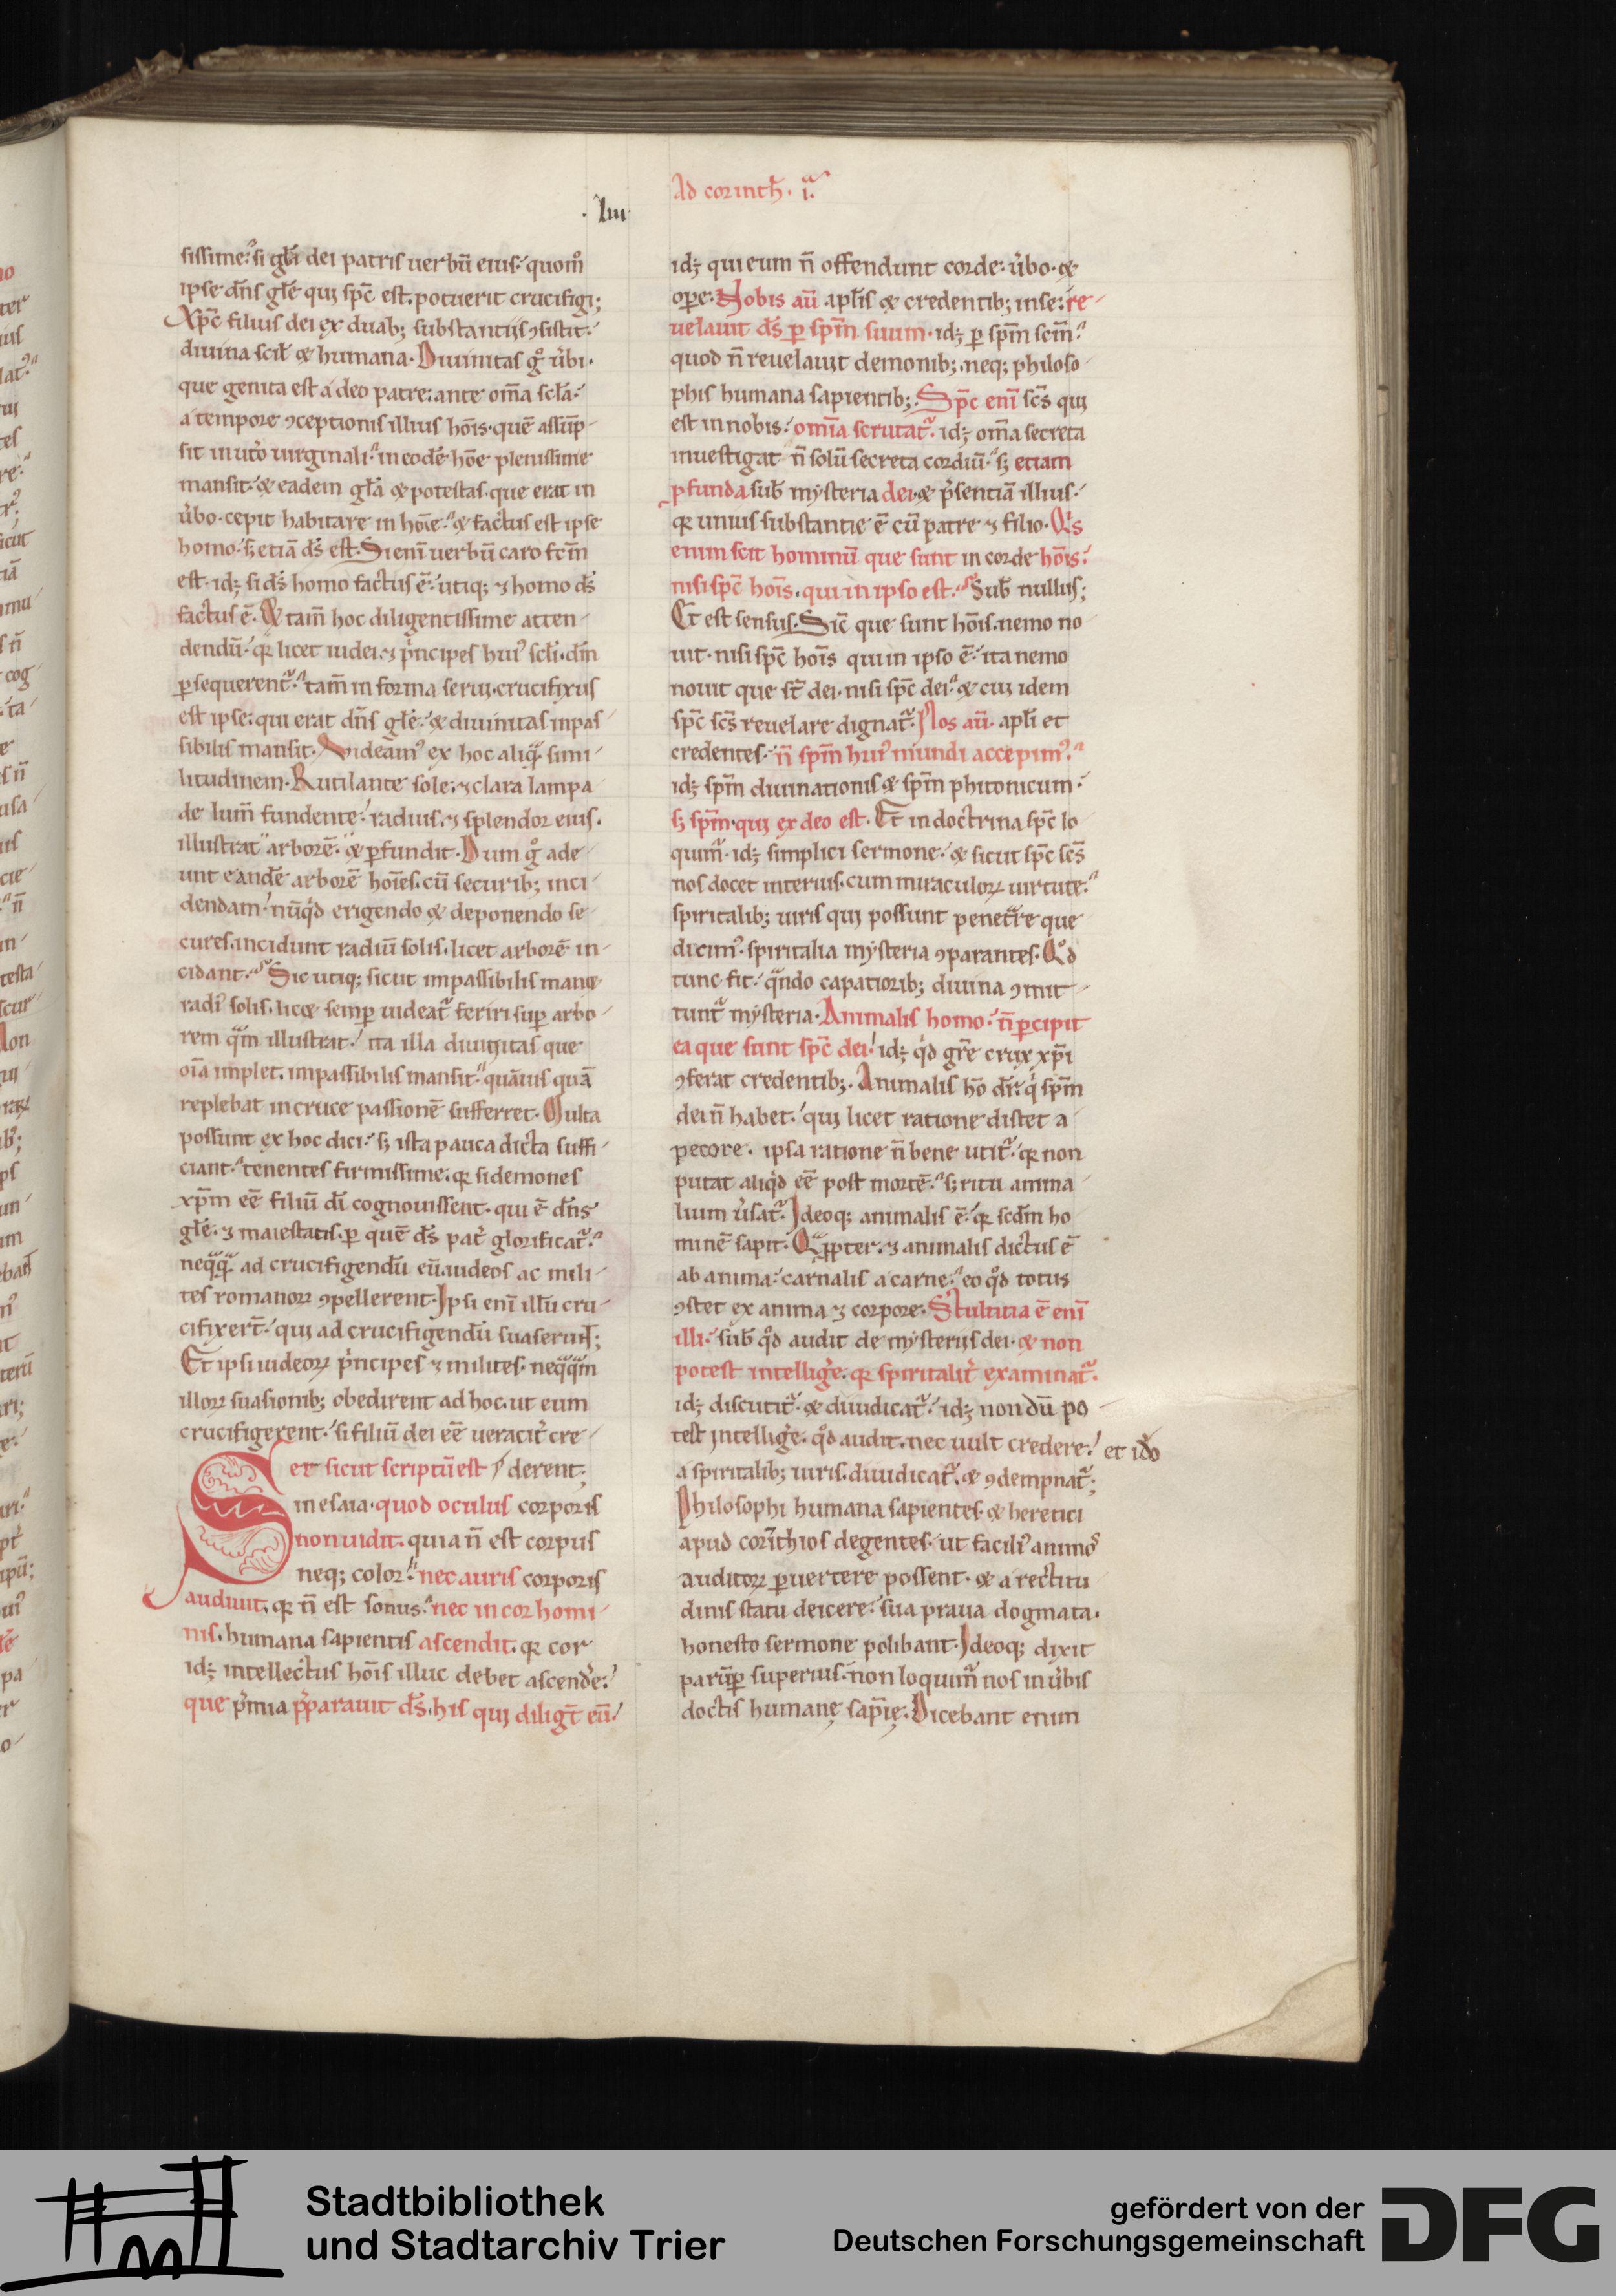 Ad corinth̄. i.ᵃ
·liii·
sissime. si gl̄a dei patris uerbū eius. quom̊
ipse dn̄s gl̄e qui sp̄c est. potuerit crucifigi;
Xp̄c filius dei ex duab; substantiis ꝯsistit.
diuina scił & humana. Diuinitas gͦ ůbi.
que genita est a deo patre. ante om̄a scl̄a.
a tempore ꝯceptionis illius hōis. quē assūp-
sit in utō uirginali. in eodē hōe plenissime
mansit. & eadem gl̄a & potestas. que erat in
ůbo. cepit habitare in hōie. & factus est ipse
homo. sʒ etiā ds̄ est. Si enī uerbū caro fcm̄
est. idʒ si ds̄ homo factus ē. utiq; ⁊ homo ds̄
factus ē. & tam̄ hoc diligentissime atten-
dendū. qꝛ licet iudei. ⁊ pͥncipes huiꝰ scl̄i. dn̄m
ꝑsequerent᷑. tam̄ in forma serui. crucifixus
est ipse. qui erat dn̄s gl̄e. & diuinitas inpas-
sibilis mansit. Videamꝰ ex hoc aliqͣ simi-
litudinem. Rutilante sole. ⁊ clara lampa-
de lum̄ fundente. radius. ⁊ splendor eius.
illustrat arborē. & ꝑfundit. Dum gͦ ade-
unt eandē arborē hōies. cū securib; inci-
dendam. nūqͥd erigendo & deponendo se-
cures. incidunt radiū solis. licet arborē in-
cidant. Sic utiq; sicut impassibilis mane
radiꝰ solis. licet semꝑ uideat᷑ feriri suꝑ arbo-
rem qͣm illustrat. ita illa diuinitas que
oīa implet. impassibilis mansit. quāuis quā
replebat in cruce passionē sufferret. Multa
possunt ex hoc dici. sʒ ista pauca dicta suffi-
ciant. tenentes firmissime. qꝛ si demones
xp̄m eē filiū dī cognouissent. qui ē dn̄s
gl̄e. ⁊ maiestatis. ꝑ quē ds̄ pat̾ glorificat᷑.
neqͣqͣ. ad crucifigendū eū. iudeos ac mili-
tes romanoꝝ ꝯpellerent. Ipsi enī illū cru-
cifixert̄. qui ad crucifigendū suaserunt;
Et ipsi iudeoꝝ pͥncipes ⁊ milites. neqͣqͣm
illoꝝ suasionib; obedirent ad hoc. ut eum
crucifigerent. si filiū dei eē ueracit̾ cre-
er sicut scriptū est // derent;
in esaia. quod oculus corporis
non uidit. quia n̄ est corpus
neq; color. nec auris corporis
audiuit. qꝛ n̄ est sonus. nec in cor homi-
nis. humana sapientis ascendit. qꝛ cor
idʒ intellectus hōis illuc debet ascende̾.
que pͥmia p̄parauit ds̄. his qui diligt̄ eū.
idʒ qui eum n̄ offendunt corde. ůbo. &
oꝑe. Nobis aū apl̄is & credentib; in se. re-
uelauit ds̄ ꝑ sp̄m suum. idʒ ꝑ sp̄m scm̄.
quod n̄ reuelauit demonib;. neq; philoso-
phis humana sapientib;. Sp̄c enī scs̄ qui
est in nobis. omīa scrutat᷑. idʒ om̄a secreta
inuestigat n̄ solū secreta cordiū. sʒ etiam
ꝓfunda sub̄ mẏsteria dei. & p̄sentiā illius.
qꝛ unius substantie ē cū patre ⁊ filio. Qͥs
enim scit hominū que sunt in corde hōis.
nisi sp̄c hōis. qui in ipso est. Sub̄ nullus;
Et est sensus. Sic̄ que sunt hōis. nemo no-
uit. nisi sp̄c hōis qui in ipso ē. ita nemo
nouit que st̄ dei. nisi sp̄c dei. & cui idem
sp̄c scs̄ reuelare dignat᷑. Nos aū. apl̄i et
credentes. n̄ sp̄m huiꝰ mundi accepimꝰ.
idʒ sp̄m diuinationis & sp̄m phitonicum.
sʒ sp̄m. qui ex deo est. Et in doctrina sp̄c lo-
quim᷑. idʒ simplici sermone. & sicut sp̄c scs̄
nos docet interius. cum miraculoꝝ uirtute.
spiritalib; uiris qui possunt penetͣre que
dicimꝰ. spiritalia mẏsteria ꝯparantes. Qͦd
tunc fit. qͣndo capatiorib; diuina ꝯmit-
tunt᷑ mẏsteria. Animalis homo. n̄ ꝑcipit
ea que sunt sp̄c dei. idʒ qͥd gr̄e crux xp̄i
ꝯferat credentib;. Animalis hō dr̄. qͥ sp̄m
dei n̄ habet. qui licet ratione distet a
pecore. ipsa ratione n̄ bene utit᷑. qꝛ non
putat aliqͥd eē post mortē. sʒ ritu anima-
lium ůsat᷑. Ideoq; animalis ē. qꝛ scdm̄ ho-
minē sapit. Qͣꝓpter. ⁊ animalis dictus ē
ab anima. carnalis a carne. eo qͦd totus
ꝯstet ex anima ⁊ corpore. Stultitia ē enī
illi. sub̄ qͦd audit de mẏsteriis dei. & non
potest intellige̾. qꝛ spiritalit̾ examinat᷑.
idʒ discutit᷑. & diiudicat᷑. idʒ non dū po-
test intellige̾. qͦd audit. nec uult credere. et idͦo
a spiritalib; uiris. diiudicat᷑. & ꝯdempnat᷑;
Philosophi humana sapientes. & heretici
apud corīthios degentes. ut faciliꝰ animos
auditoꝝ ꝑuertere possent. & a rectitu-
dinis statu deicere. sua praua dogmata.
honesto sermone polibant. Ideoq; dixit
parūꝑ superius. non loquim᷑ nos in ůbis
doctis humanę sapīę. Dicebant enim
Stadtbibliothek
und Stadtarchiv Trier
gefördert von der
Deutschen Forschungsgemeinschaft
DFG